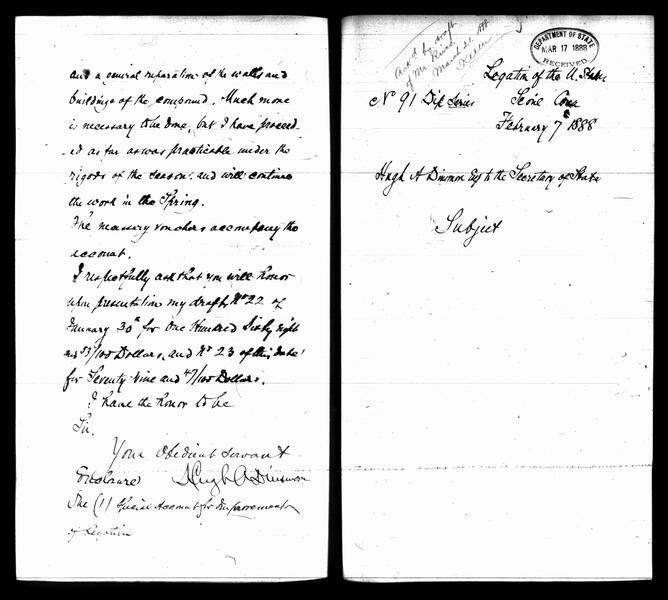 and a general reparation of the walls and
buildings of the compound. Much more
is necessary to be done, but I have proceed-
ed as far as was practicable under the
rigors of the season: and will continue
the work in the Spring.
The necessary vouchers accompany the
account.
I respectfully ask that you will honor
upon presentation my drafts No 22 of
January 30th for One Hundred Sixty eight
and 53/100 Dollars, and No 23 of this date
for Seventy Nine and 47/100 Dollars.
I have the honor to be
Sir.
Your Obedient Servant
Enclosure Hugh A Dinsmore
One (1) Special Account for Improvement
of Legation
Ack'd by draft
of Mr
March 21.
DEPARTMENT OF STATE
MAR 17 1888
RECEIVED
Legation of the U. States
No 91 Dip Series Seoul Corea
February 7 1888
Hugh A Dinsmore Esq to the Secretary of State
Subject